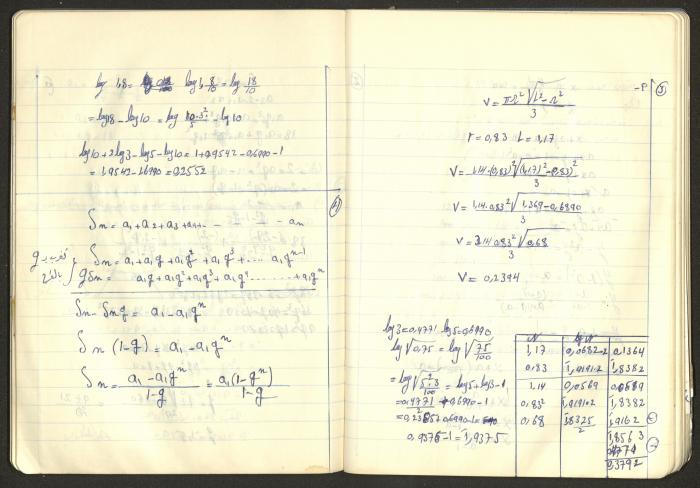 log 1,8 = log 1,8/10 = log 18/10
= log 18 - log 10 = log 10·3²/5 : log 10
log 10 + 2 log 3 - log 5 - log 10 = 1 + 0,9542 - 0,6990 - 1
= 1,9542 - 1,6990 = 0,2552
Sn = a₁ + a₂ + a₃ + a₄ + ... - - - an
Sn = a₁ + a₁q + a₁q² + a₁q³ + .... a₁qⁿ⁻¹
qSn = a₁q + a₁q² + a₁q³ + a₁q⁴ ........ + a₁qⁿ
Sn - Snq = a₁ - a₁qⁿ
Sn (1-q) = a₁ - a₁qⁿ
Sn = a₁ - a₁qⁿ / 1-q = a₁(1-qⁿ) / 1-q
V = πr²√L² - r² / 3
r = 0,83 L = 1,17
V = 3,14·(0,83)²√(1,17)² - (0,83)² / 3
V = 3,14·0,83²√1,369 - 0,6890 / 3
V = 3,14·0,83²√0,68 / 3
V = 0,2394
log 3 = 0,4771 log 5 = 0,6990
log √0,75 = log √75/100
= log √5²·3/100 = log 5 + log 3 - 1
= 0,4771/2 + 0,6990 - 1
0,9375 - 1 = 1,9375
N log N
1,17 0,0682·2 0,1364
0,83 1,9191·2 1,8382
1,14 0,0569 0,0569
0,83² 1,9191·2 1,8382
0,68 1,8325/2 1,9162
1,8563
0,4771
0,3792